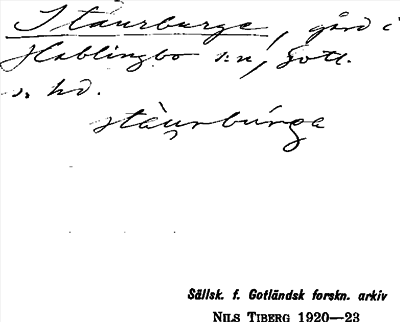 Ståurburge, gård i
Hablingbo s:n, Gotl.
s. hd.
stàu̯rbúrga
Sällsk. f. Gotländsk forskn. arkiv
NILS TIBERG 1920—23